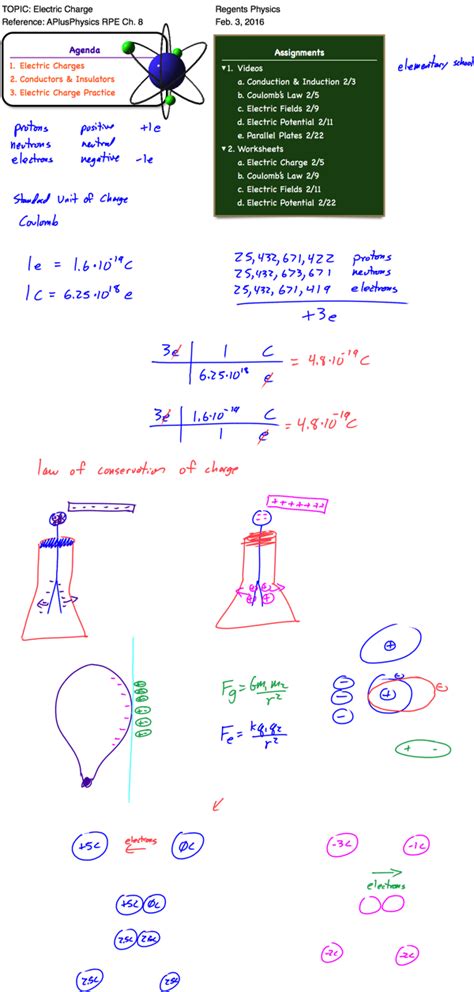 TOPIC: Electric Charge
Reference: APlusPhysics RPE Ch. 8
Regents Physics
Feb. 3, 2016
Agenda
1. Electric Charges
2. Conductors & Insulators
3. Electric Charge Practice
Assignments
▼1. Videos
a. Conduction & Induction 2/3
b. Coulomb's Law 2/5
c. Electric Fields 2/9
d. Electric Potential 2/11
e. Parallel Plates 2/22
▼2. Worksheets
a. Electric Charge 2/5
b. Coulomb's Law 2/9
c. Electric Fields 2/11
d. Electric Potential 2/22
elementary school
protons positive +1e
neutrons neutral
electrons negative -1e
Standard Unit of Charge
Coulomb
1e = 1.6·10⁻¹⁹ C
1C = 6.25·10¹⁸ e
25,432,671,422 protons
25,432,673,671 neutrons
25,432,671,419 electrons
+3e
3e | 1 C
6.25·10¹⁸ e = 4.8·10⁻¹⁹ C
3e | 1.6·10⁻¹⁹ C
1 e = 4.8·10⁻¹⁹ C
law of conservation of charge
- - - - - - -
+ + + + + + +
Fg = Gm₁m₂
r²
Fe = kq₁q₂
r²
+5C electrons 0C
+5C 0C
2.5C 2.5C
2.5C 2.5C
-3C -1C
electrons
-2C -2C